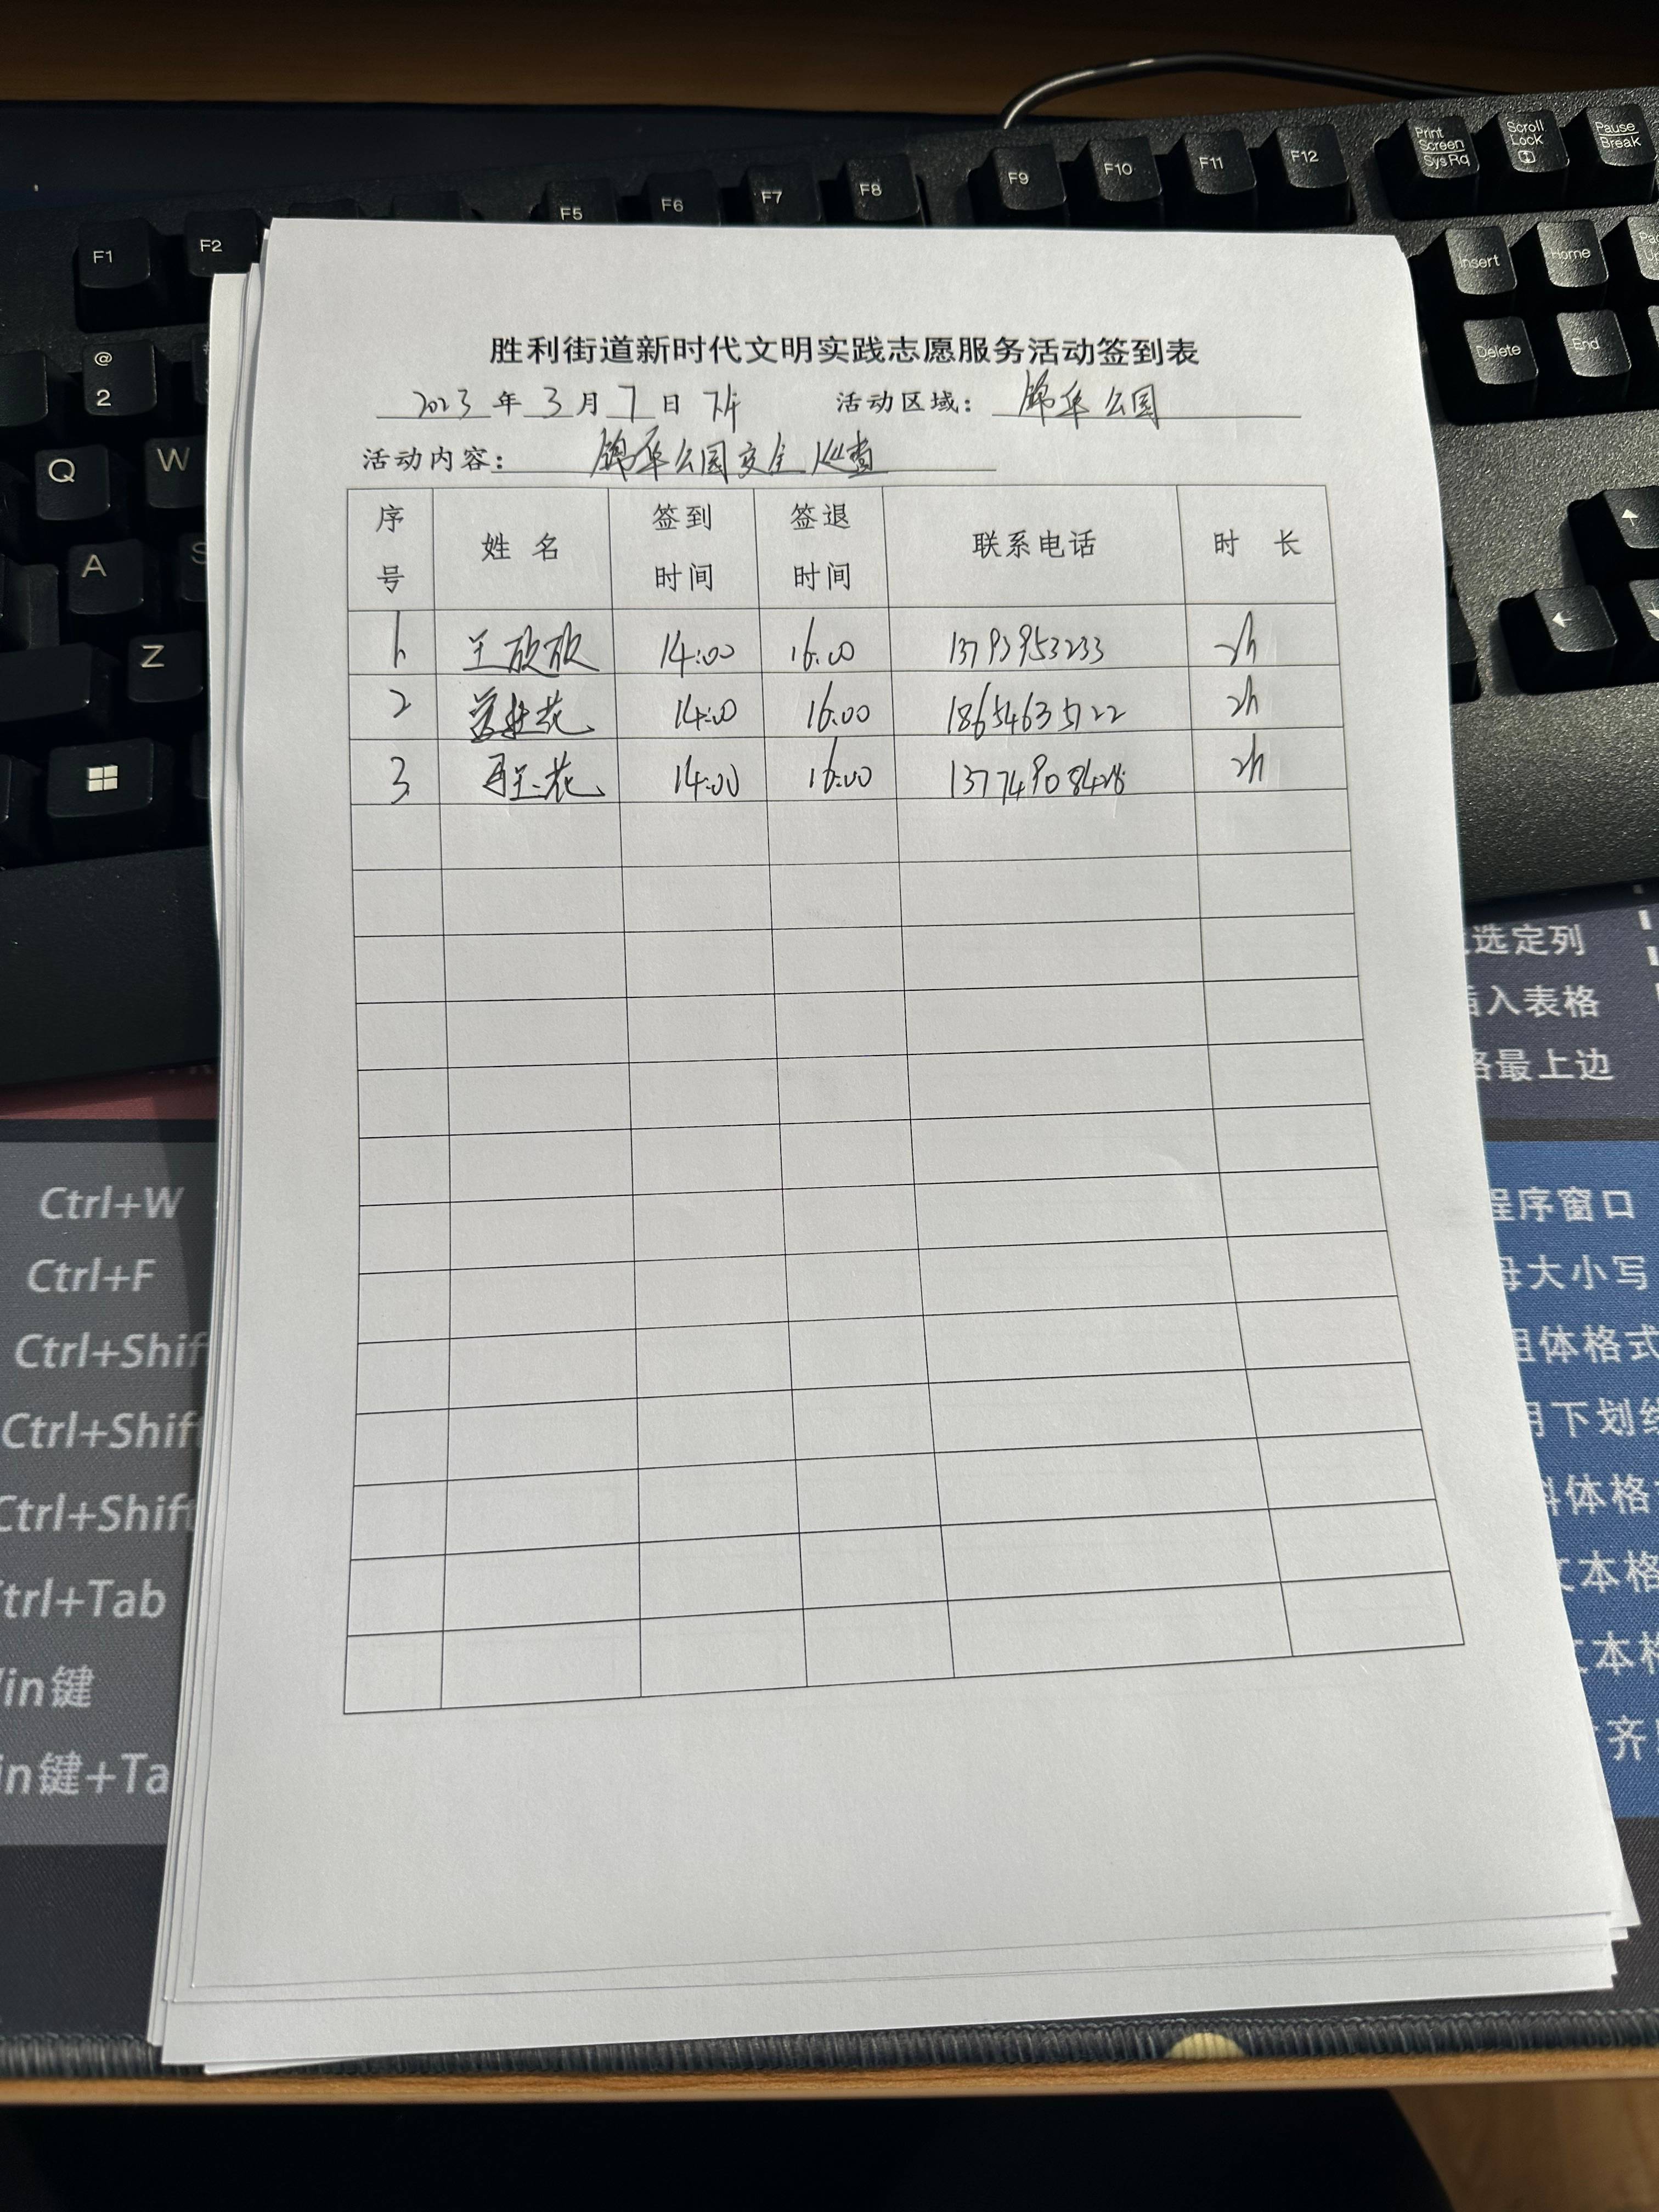 Print Screen SysRq
Scroll Lock
Pause Break
F1 F2 F5 F6 F7 F8 F9 F10 F11 F12
Insert Home
Delete End
@ 2
Q W
A S
Z
胜利街道新时代文明实践志愿服务活动签到表
2023 年 3 月 7 日 下午 活动区域: 锦华公园
活动内容: 锦华公园安全巡查
序号 姓名 签到时间 签退时间 联系电话 时长
1 王欣欣 14:00 16:00 13793953233 2h
2 14:00 16:00 18654635122 2h
3 14:00 16:00 13774908428 2h
选定列
插入表格
格最上边
Ctrl+W 程序窗口
Ctrl+F 母大小写
Ctrl+Shif 粗体格式
Ctrl+Shift 用下划线
Ctrl+Shift 斜体格
Ctrl+Tab 文本格
Win键 文本格
Win键+Ta 齐